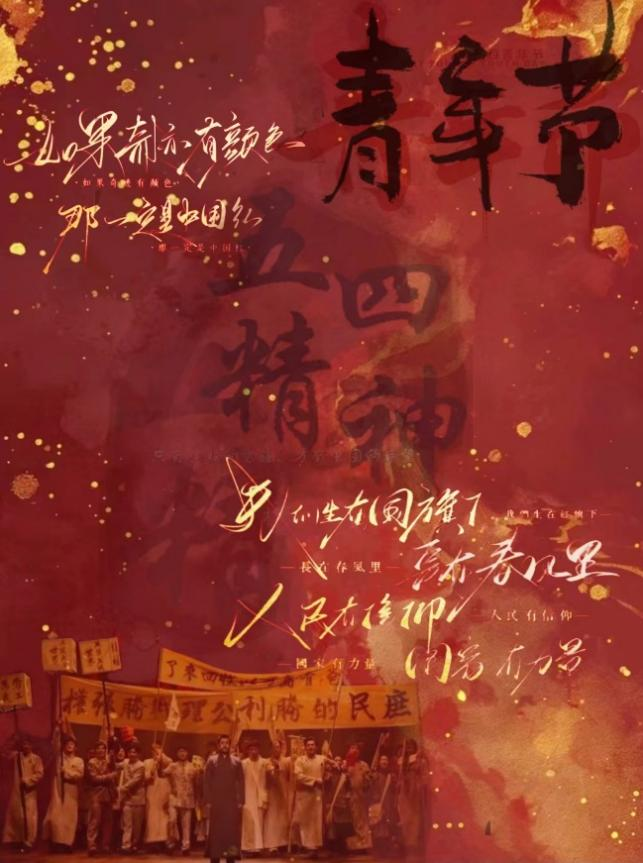 青年节
如果奇迹有颜色
如果奇迹有颜色
那一定是中国红
那一定是中国红
五四
精神
我们生在国旗下
我們生在紅旗下
長在春風里
长在春风里
人民有信仰
人民有信仰
國家有力量
国家有力量
庶民的勝利公理戰勝強權